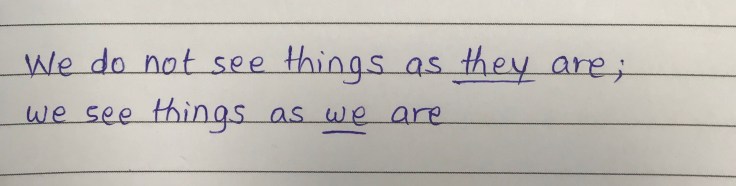 We do not see things as they are;
we see things as we are